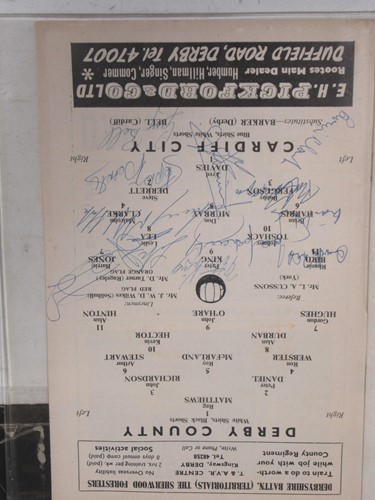 DERBYSHIRE BATTN. (TERRITORIALS) THE SHERWOOD FORESTERS
Train to do a worth-
while job with your
County Regiment
T. & A.V.R. CENTRE
Kingsway, DERBY
TEL. 40258
Write, Phone or Call
2 hrs. training per wk. (paid)
8 days annual camp (paid)
No Overseas liability
Social activities
DERBY COUNTY
White Shirts, Black Shorts
Right Left
1
Reg
MATTHEWS
2 3
Peter John
DANIEL RICHARDSON
4 5 6
Ron Roy Arthur
WEBSTER McFARLAND STEWART
8 10
Alan Kevin
DURBAN HECTOR
7 9 11
Gordon John Alan
HUGHES O'HARE HINTON
Referee:
Mr. L. A. CUSSONS
(York)
Linesmen:
Mr. J. W. D. Wilkes (Solihull)
RED FLAG
Mr. D. Turner (Rugeley)
ORANGE FLAG
Ronnie Peter Barrie
BIRD KING JONES
11 9 7
John Leslie
TOSHACK LEA
10 8
Brian Don Malcolm
HARRIS MURRAY CLARKE
6 5 4
Bobby Steve
FERGUSON DERRETT
3 2
Fred
DAVIES
1
Left Right
CARDIFF CITY
Blue Shirts, White Shorts
Substitutes—BARKER (Derby) BELL (Cardiff)
E. H. PICKFORD & CO LTD
Rootes Main Dealer Humber, Hillman, Singer, Commer *
DUFFIELD ROAD, DERBY Tel. 47007